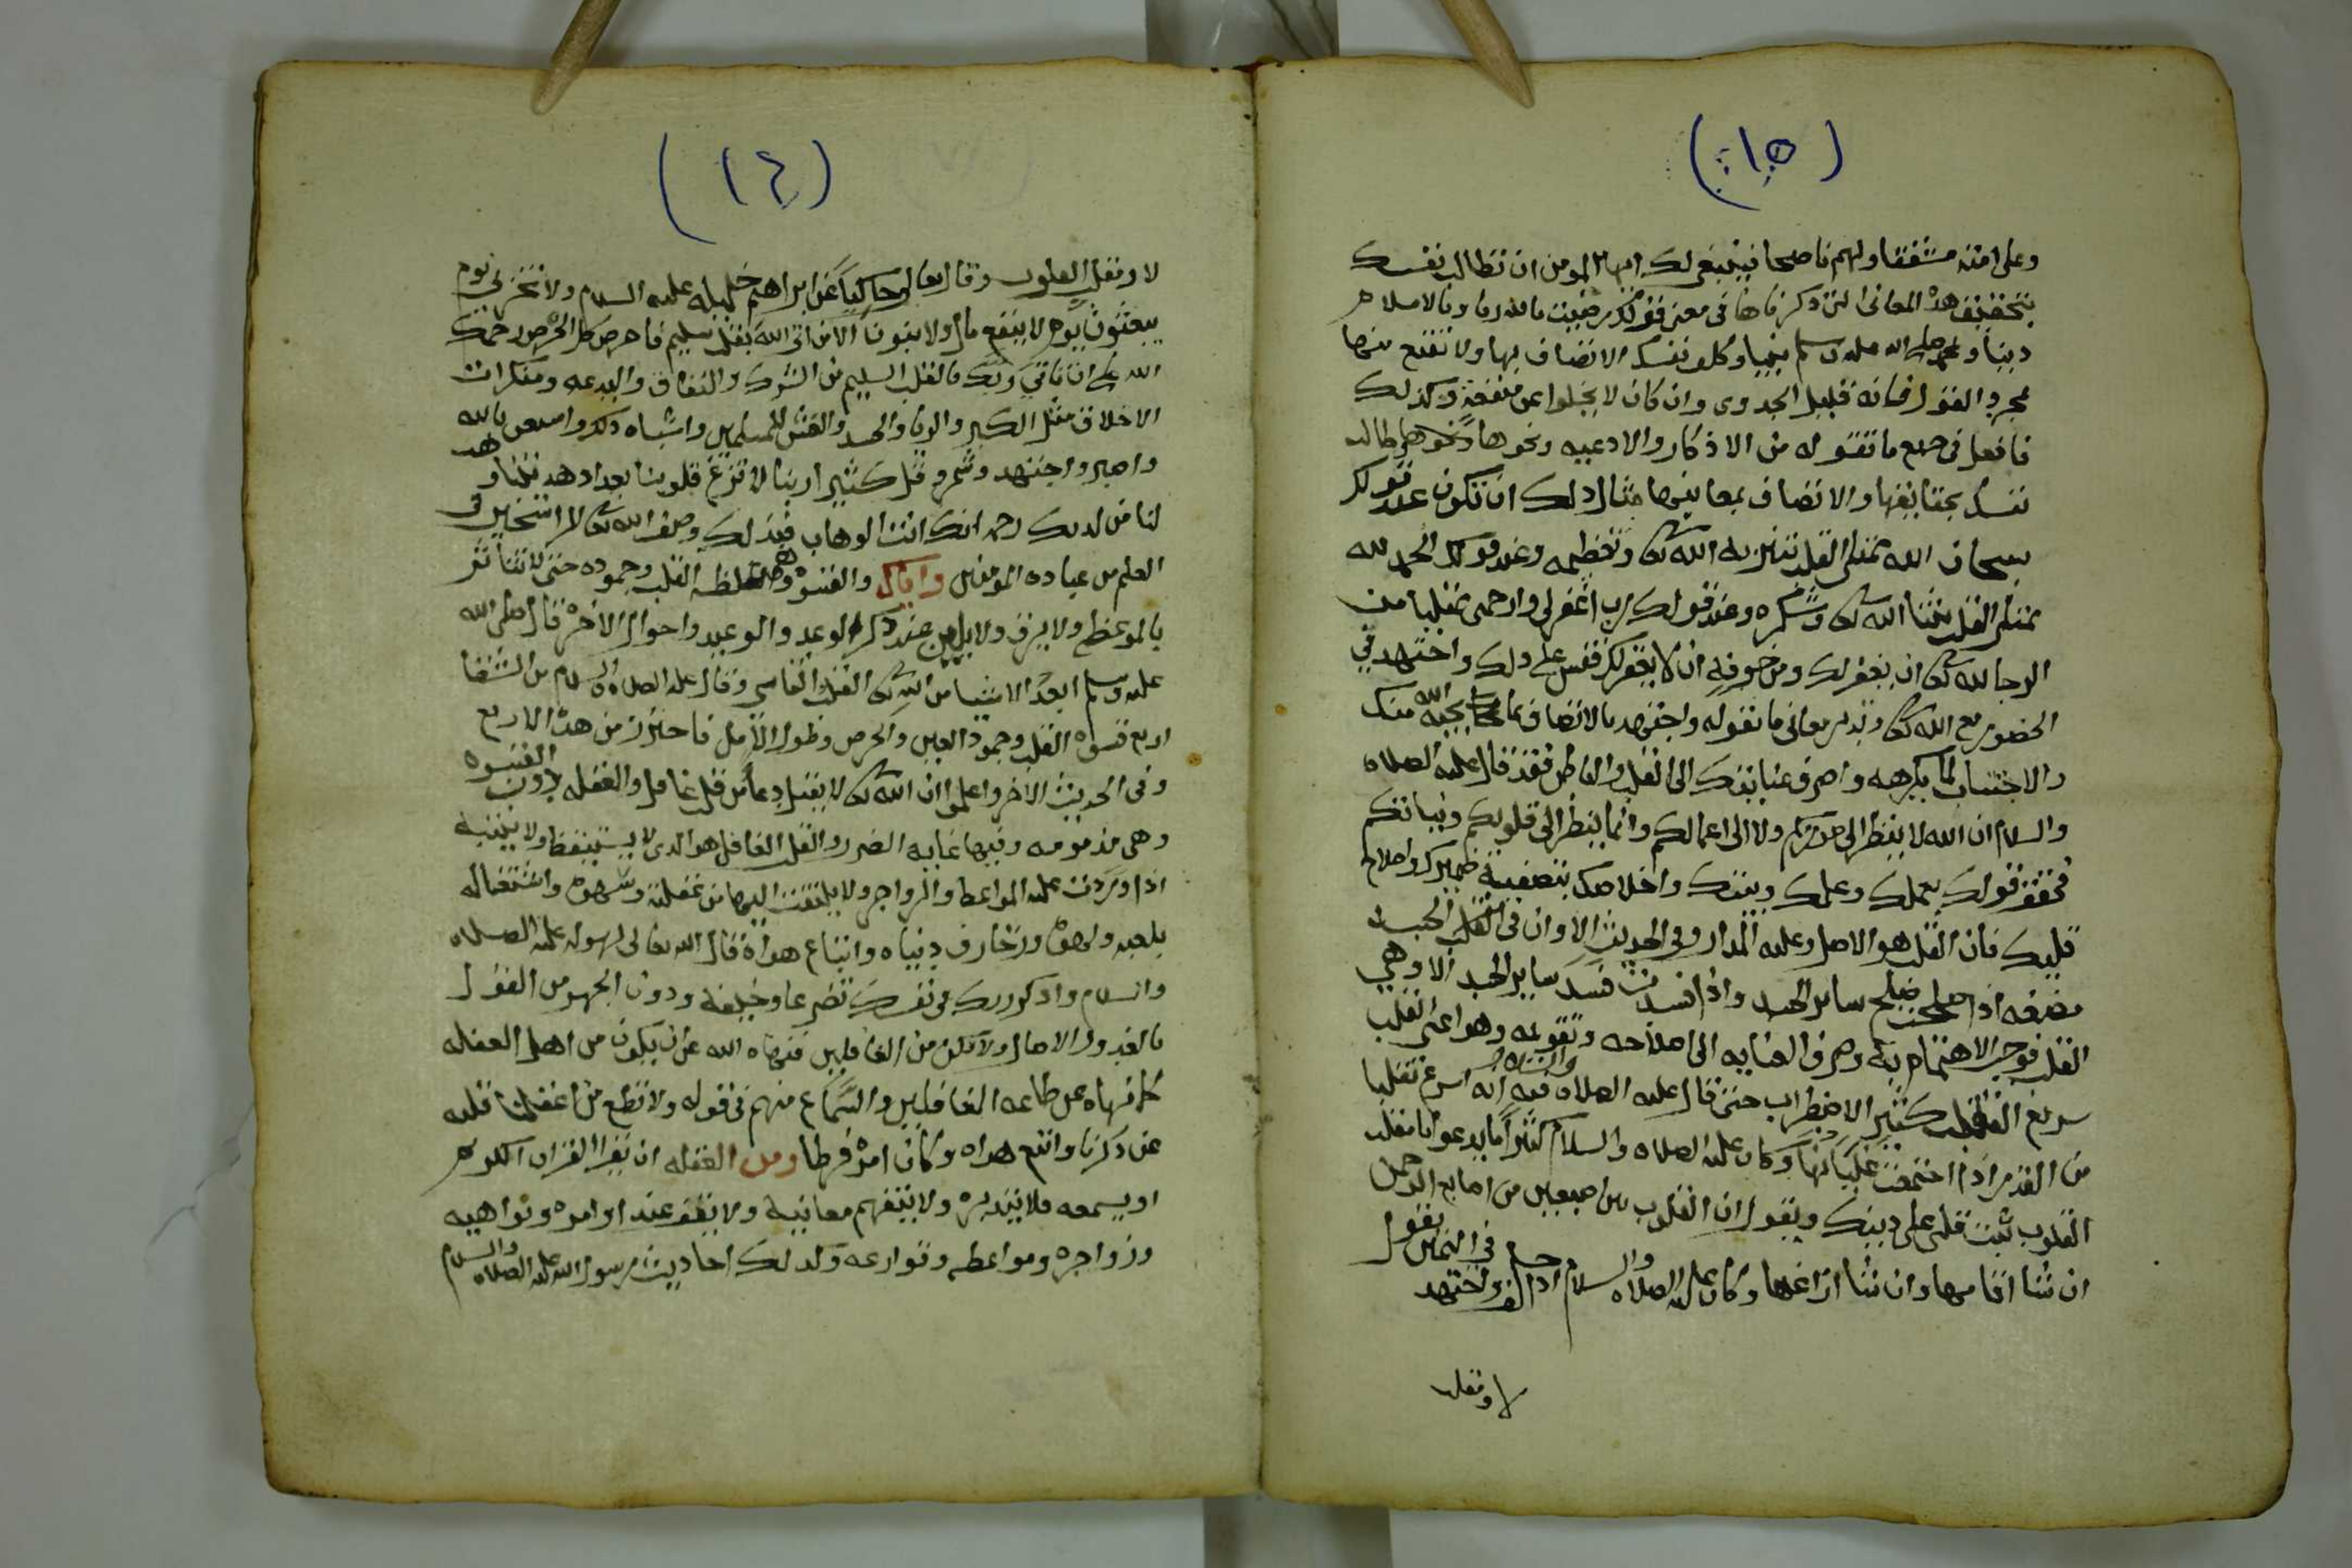 (١٥)
وعلى امته مشفقا ولهم ناصحا فينبغي لك ايها المومن ان تطالب نفسك
بتحقيق هذه المعاني التي ذكرناها في معنى قولك رضيت بالله ربا وبالاسلام
دينا وبمحمد صلى الله عليه وسلم نبيا وكلف نفسك الاتصاف بها ولا تقنع منها
بمجرد القول فانه قليل الجدوى وان كان لا يخلوا عن منفعة وكذلك
فافعل في جميع ما تقوله من الاذكار والادعيه ونحوها وطالب
نفسك بحقايقها والاتصاف بمعانيها مثال ذلك ان تكون عند قولك
سبحان الله ممتلي القلب بتنزيه الله تعالى وتعظيمه وعند قولك الحمد لله
ممتلي القلب بثنا الله تعالى وشكره وعند قولك رب اغفر لي وارحمني ممتليا من
الرجا لله تعالى ان يغفر لك ومن خوفه ان لا يغفر لك فقس على ذلك واجتهد في
الحضور مع الله تعالى وتدبر معاني ما تقوله واجتهد بالاتصاف بما يحبه الله منك
والاجتناب لما يكرهه واصرف عنايتك الى القلب والباطن فقد قال عليه الصلاه
والسلام ان الله لا ينظر الى صوركم ولا الى اعمالكم وانما ينظر الى قلوبكم ونياتكم
فحقق قولك بعملك وعملك وبنيتك واخلاصك بتصفية ضميرك واصلاح
قلبك فان القلب هو الاصل وعليه المدار وفي الحديث الا وان في الجسد
مضغه اذا صلحت صلح ساير الجسد واذا فسدت فسد ساير الجسد الا وهي
القلب فوجب الاهتمام به وصرف العنايه الى اصلاحه وتقويمه وهو اعني القلب
سريع التقلب كثير الاضطراب حتى قال عليه الصلاه والسلام فيه انه اسرع تقلبا
من القدر اذا اجتمعت غليانها وكان عليه الصلاه والسلام كثيرا ما يدعو يا مقلب
القلوب ثبت قلبي على دينك ويقول ان القلوب بين اصبعين من اصابع الرحمن
ان شا اقامها وان شا ازاغها وكان عليه الصلاه والسلام اذا حلف واجتهد في اليمين يقول
لا ومقلب
(١٤)
لا ومقلب القلوب وقال تعالى حاكيا عن ابراهيم خليله عليه السلام ولا تخزني يوم
يبعثون يوم لا ينفع مال ولا بنون الا من اتى الله بقلب سليم فاحرص كل الحرص رحمك
الله على ان تاتي ربك بالقلب السليم من الشرك والنفاق والبدعه ومنكرات
الاخلاق مثل الكبر والريا والحسد والغش للمسلمين واشباه ذلك واستعن بالله
واصبر واجتهد وشمر وقل كثيرا ربنا لا تزغ قلوبنا بعد اذ هديتنا وهب
لنا من لدنك رحمه انك انت الوهاب فبذلك وصف الله تعالى الراسخين في
العلم من عباده المومنين واياك والقسوه وهي غلظ القلب وجموده حتى لا يتاثر
بالموعظه ولا يرق ولا يلين عند ذكر الوعد والوعيد واحوال الاخره قال صلى الله
عليه وسلم ابعد الاشيا من الله تعالى القلب القاسي وقال عليه الصلاه والسلام من الشقا
اربع قسوه القلب وجمود العين والحرص وطول الامل فاحترز من هذه الاربع
وفي الحديث الاخر واعلموا ان الله تعالى لا يقبل دعا من قلب غافل والغفله دون القسوه
وهي مذمومه وفيها غايه الضرر والقلب الغافل هو الذي لا يستيقظ ولا ينتبه
اذا وردت عليه المواعظ والزواجر ولا يلتفت اليها من غفلته وسهوه واشتغاله
بلعبه ولهوه وزخارف دنياه واتباع هواه قال الله تعالى لرسوله عليه الصلاه
والسلام واذكر ربك في نفسك تضرعا وخيفة ودون الجهر من القول
بالغدو والاصال ولا تكن من الغافلين فنهاه الله عن ان يكون من اهل الغفله
كما نهاه عن طاعه الغافلين والسماع منهم في قوله ولا تطع من اغفلنا قلبه
عن ذكرنا واتبع هواه وكان امره فرطا ومن الغفله ان يقرا القران الكريم
او يسمعه فلا يتدبره ولا يتفهم معانيه ولا يقف عند اوامره ونواهيه
وزواجره ومواعظه وقوارعه وكذلك احاديث رسول الله عليه الصلاه والسلام